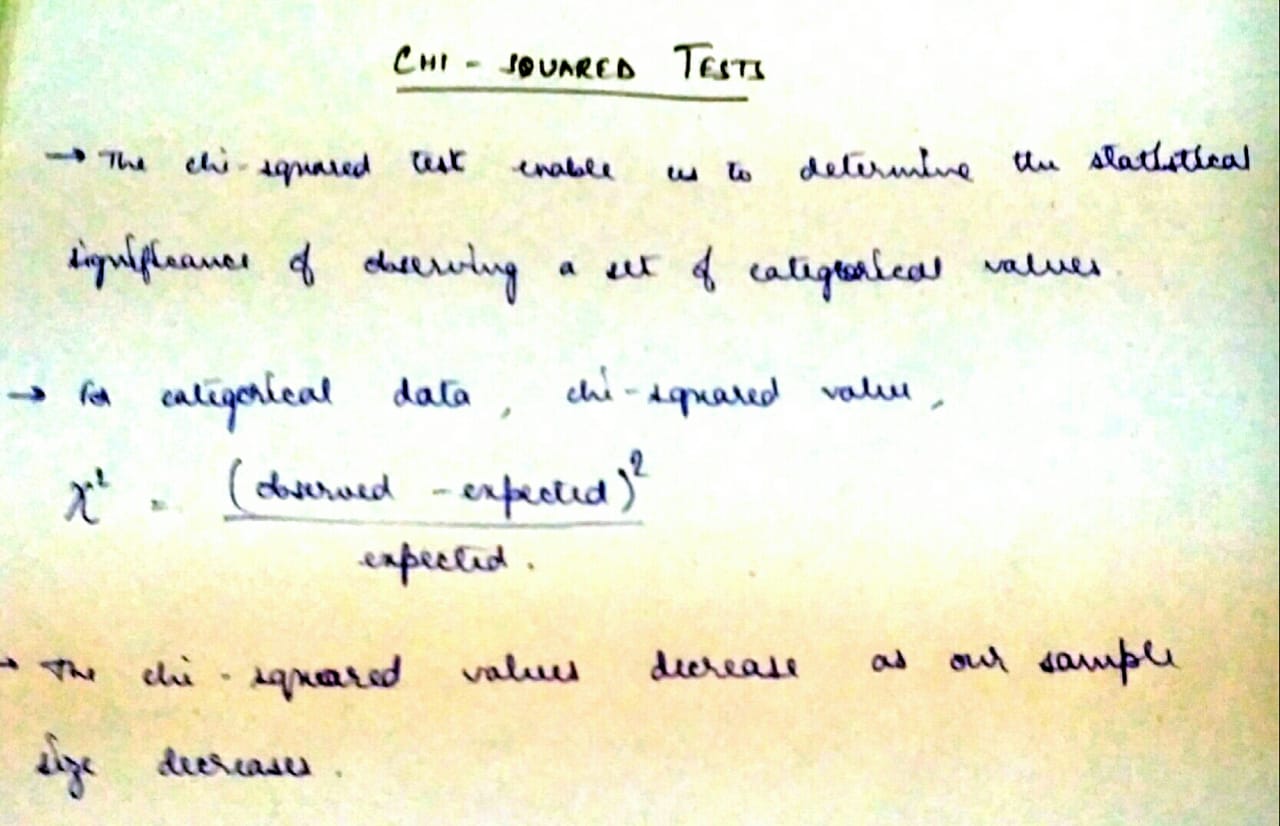 CHI - SQUARED TESTS
→ The chi-squared test enable us to determine the statistical
significance of observing a set of categorical values.
→ for categorical data, chi-squared value,
χ² = (observed - expected)²
expected.
→ The chi-squared values decrease as our sample
size decreases.